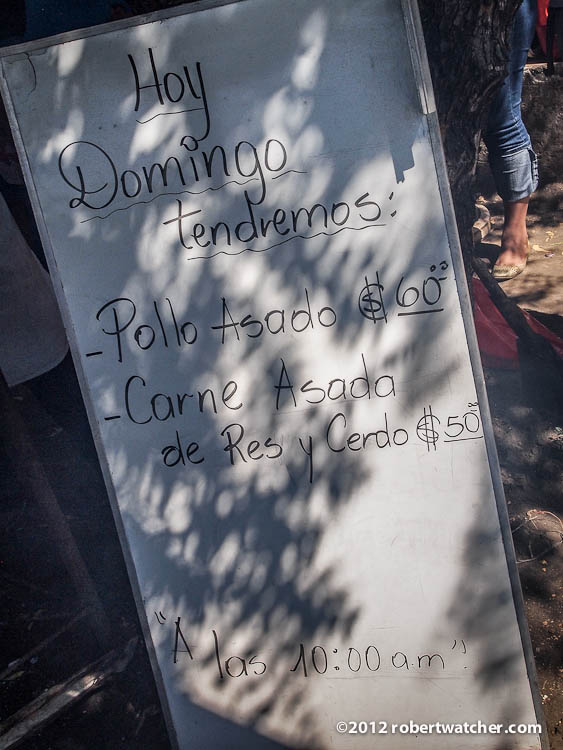 Hoy
Domingo
tendremos:
-Pollo Asado $ 60.00
-Carne Asada
de Res y Cerdo $ 50.00
"A las 10:00 a.m".
©2012 robertwatcher.com